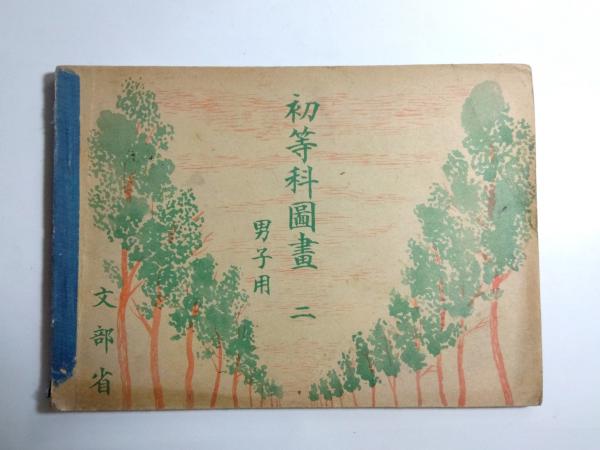 初等科圖畫 二
男子用
文部省